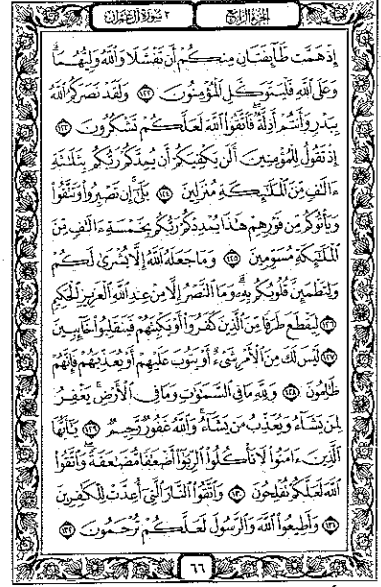 الجزء الرابع
٣ سورة آل عمران
إِذْ هَمَّت طَّآئِفَتَانِ مِنكُمْ أَن تَفْشَلَا وَٱللَّهُ وَلِيُّهُمَا
وَعَلَى ٱللَّهِ فَلْيَتَوَكَّلِ ٱلْمُؤْمِنُونَ ١٢٢ وَلَقَدْ نَصَرَكُمُ ٱللَّهُ
بِبَدْرٍ وَأَنتُمْ أَذِلَّةٌ فَٱتَّقُوا۟ ٱللَّهَ لَعَلَّكُمْ تَشْكُرُونَ ١٢٣
إِذْ تَقُولُ لِلْمُؤْمِنِينَ أَلَن يَكْفِيَكُمْ أَن يُمِدَّكُمْ رَبُّكُم بِثَلَٰثَةِ
ءَالَٰفٍ مِّنَ ٱلْمَلَٰٓئِكَةِ مُنزَلِينَ ١٢٤ بَلَىٰٓ إِن تَصْبِرُوا۟ وَتَتَّقُوا۟
وَيَأْتُوكُم مِّن فَوْرِهِمْ هَٰذَا يُمْدِدْكُمْ رَبُّكُم بِخَمْسَةِ ءَالَٰفٍ مِّنَ
ٱلْمَلَٰٓئِكَةِ مُسَوِّمِينَ ١٢٥ وَمَا جَعَلَهُ ٱللَّهُ إِلَّا بُشْرَىٰ لَكُمْ
وَلِتَطْمَئِنَّ قُلُوبُكُم بِهِۦ وَمَا ٱلنَّصْرُ إِلَّا مِنْ عِندِ ٱللَّهِ ٱلْعَزِيزِ ٱلْحَكِيمِ
١٢٦ لِيَقْطَعَ طَرَفًا مِّنَ ٱلَّذِينَ كَفَرُوٓا۟ أَوْ يَكْبِتَهُمْ فَيَنقَلِبُوا۟ خَآئِبِينَ
١٢٧ لَيْسَ لَكَ مِنَ ٱلْأَمْرِ شَىْءٌ أَوْ يَتُوبَ عَلَيْهِمْ أَوْ يُعَذِّبَهُمْ فَإِنَّهُمْ
ظَٰلِمُونَ ١٢٨ وَلِلَّهِ مَا فِى ٱلسَّمَٰوَٰتِ وَمَا فِى ٱلْأَرْضِ يَغْفِرُ
لِمَن يَشَآءُ وَيُعَذِّبُ مَن يَشَآءُ وَٱللَّهُ غَفُورٌ رَّحِيمٌ ١٢٩ يَٰٓأَيُّهَا
ٱلَّذِينَ ءَامَنُوا۟ لَا تَأْكُلُوا۟ ٱلرِّبَوٰٓا۟ أَضْعَٰفًا مُّضَٰعَفَةً وَٱتَّقُوا۟
ٱللَّهَ لَعَلَّكُمْ تُفْلِحُونَ ١٣٠ وَٱتَّقُوا۟ ٱلنَّارَ ٱلَّتِىٓ أُعِدَّتْ لِلْكَٰفِرِينَ
١٣١ وَأَطِيعُوا۟ ٱللَّهَ وَٱلرَّسُولَ لَعَلَّكُمْ تُرْحَمُونَ ١٣٢
٦٦